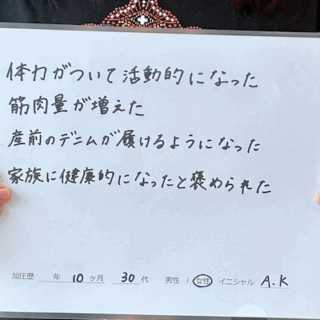 体力がついて活動的になった
筋肉量が増えた
産前のデニムが履けるようになった
家族に健康的になったと褒められた
加圧歴 年 10 ヶ月 30 代 男性 / 女性 イニシャル A.K